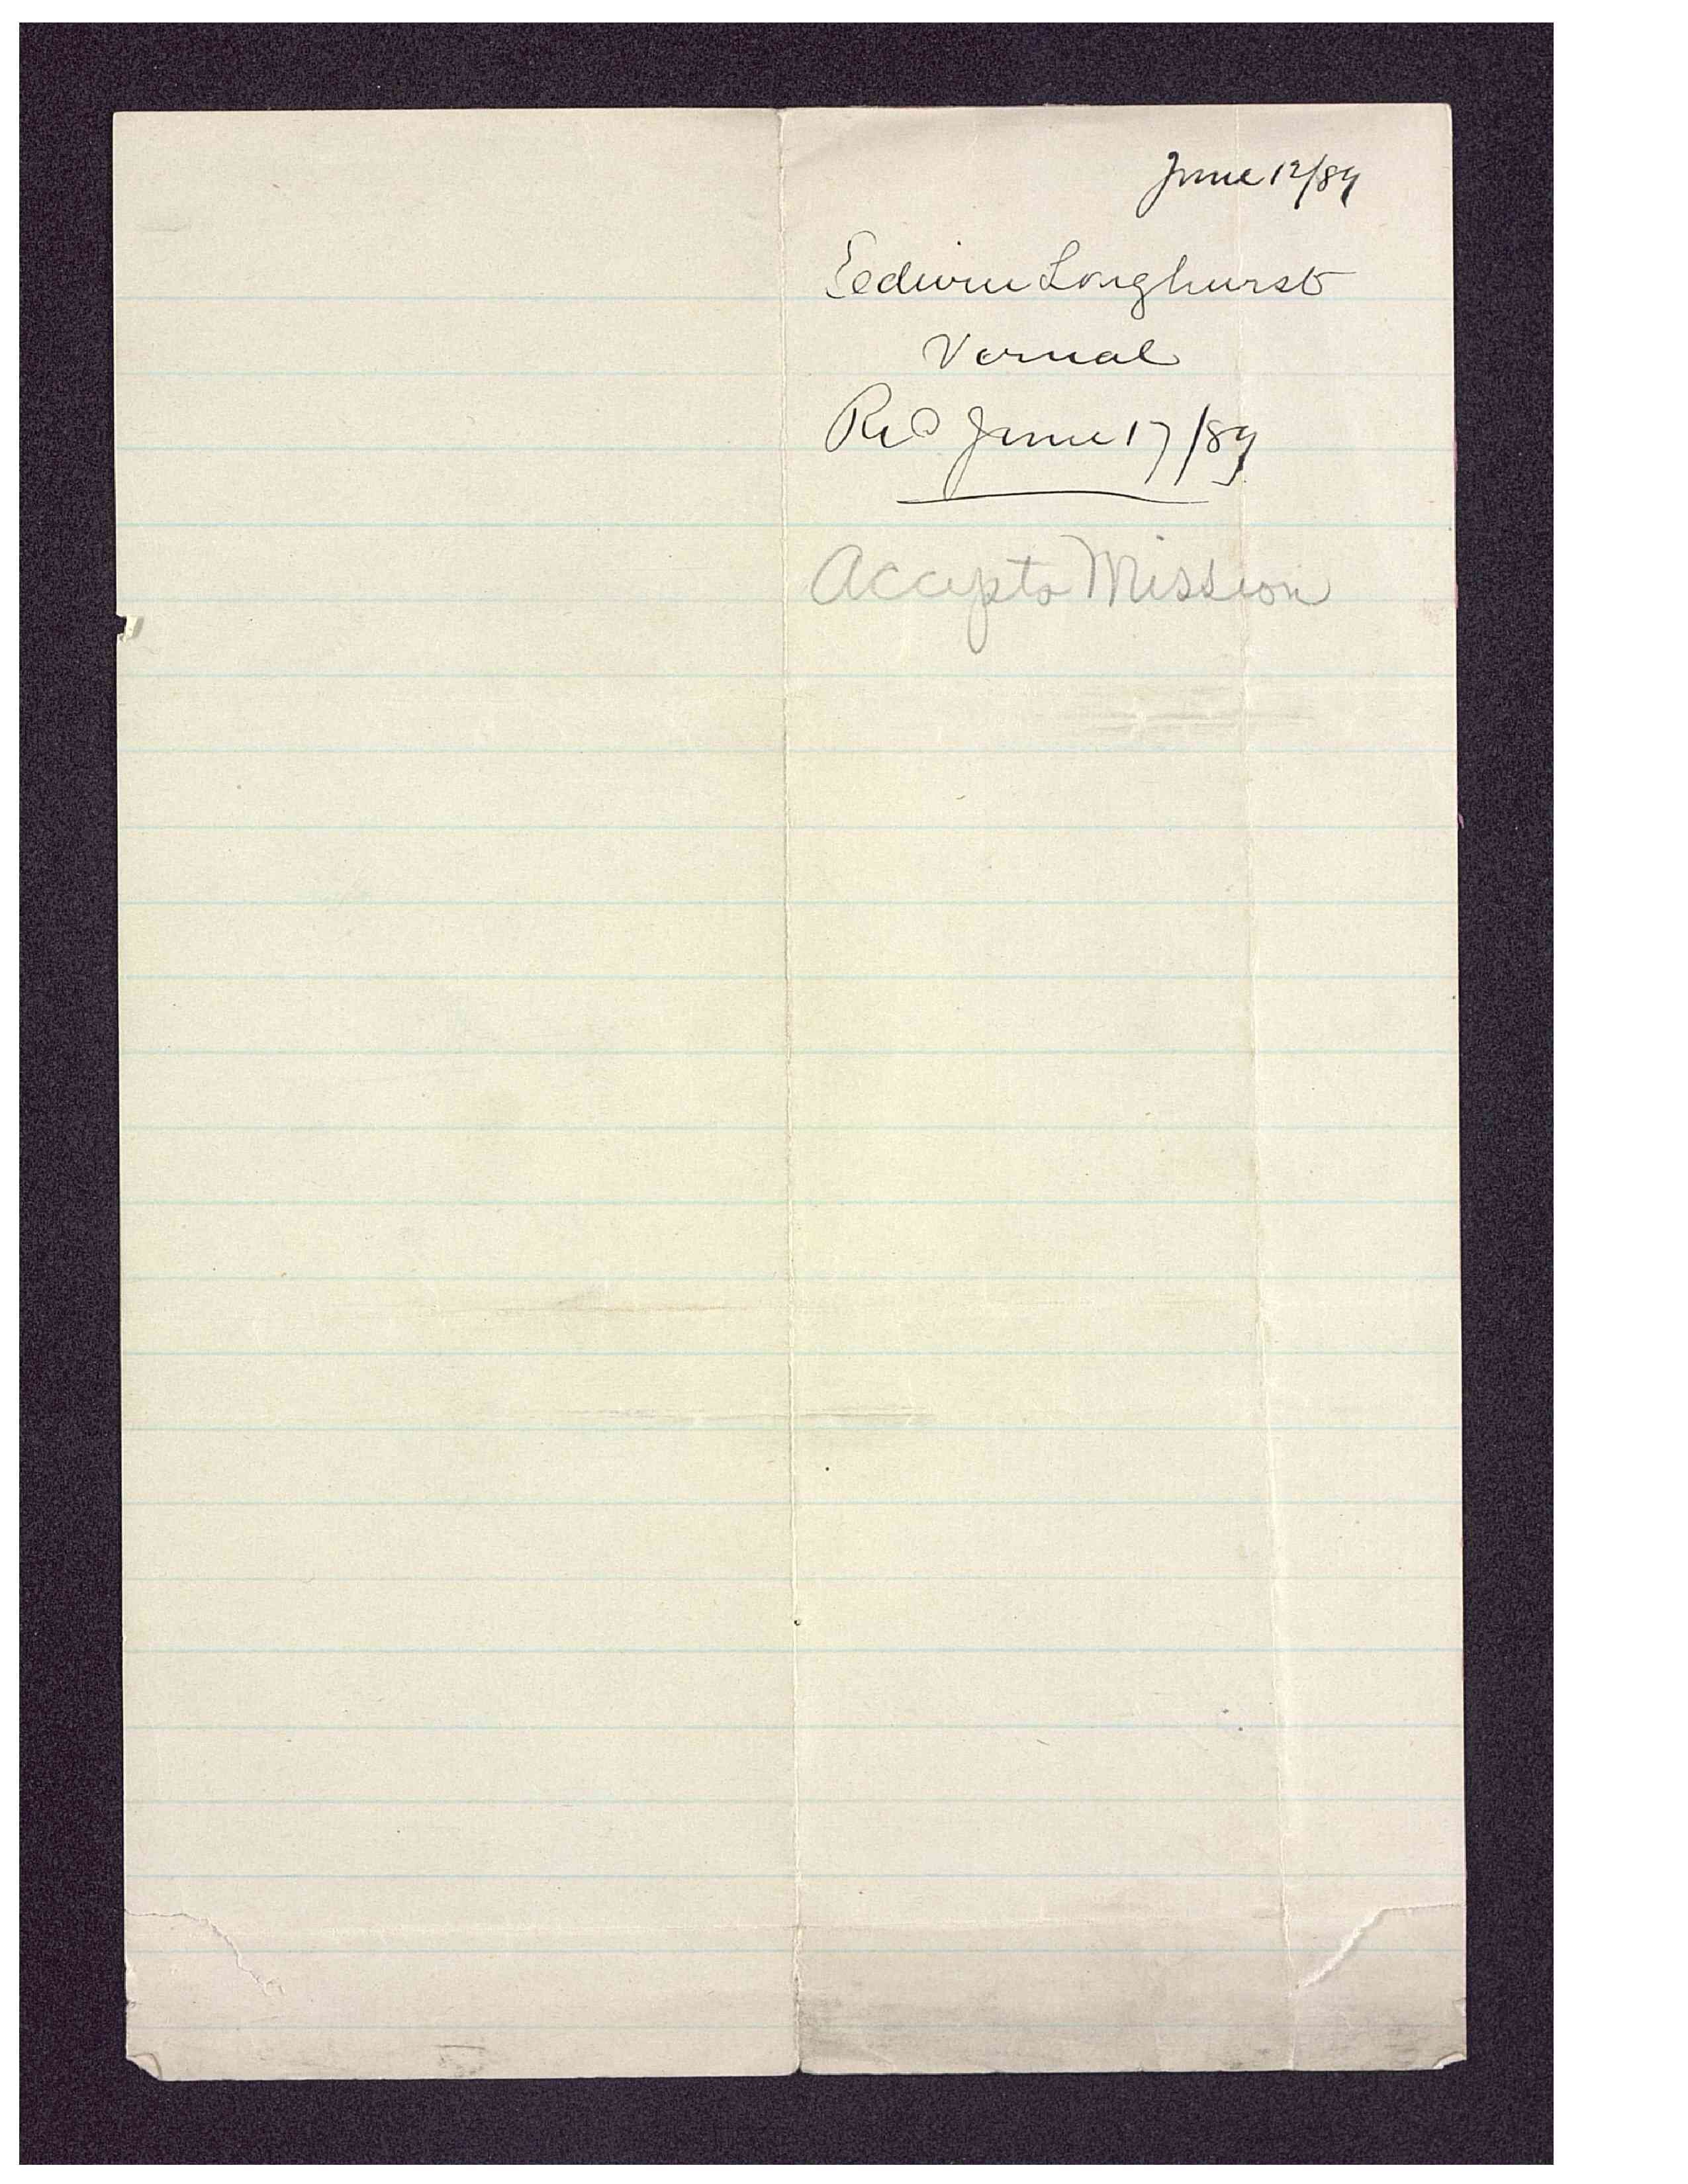 June 12/89
Eedwin Longhurst
Vernal
Rec June 17/89
Accepts Mission